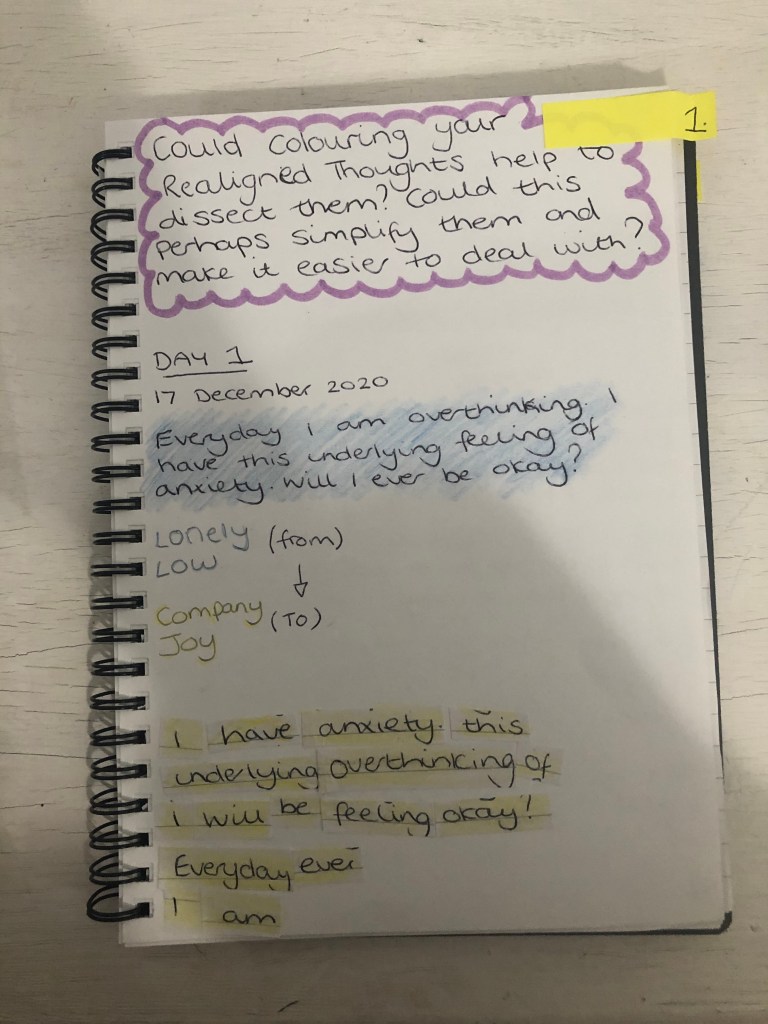 1.
Could colouring your
Realigned Thoughts help to
dissect them? Could this
perhaps simplify them and
make it easier to deal with?
DAY 1
17 December 2020
Everyday I am overthinking. I
have this underlying feeling of
anxiety. Will I ever be okay?
Lonely (from)
LOW
↓
Company (To)
Joy
I have anxiety. this
underlying overthinking of
i will be feeling okay!
Everyday ever
I am